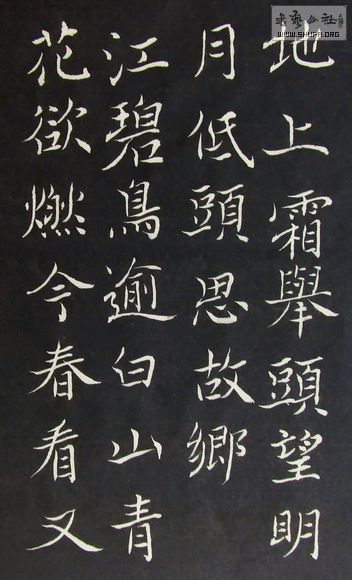 地上霜舉頭望明
月低頭思故鄉
江碧鳥逾白山青
花欲燃今春看又
WWW.SHUFA.ORG